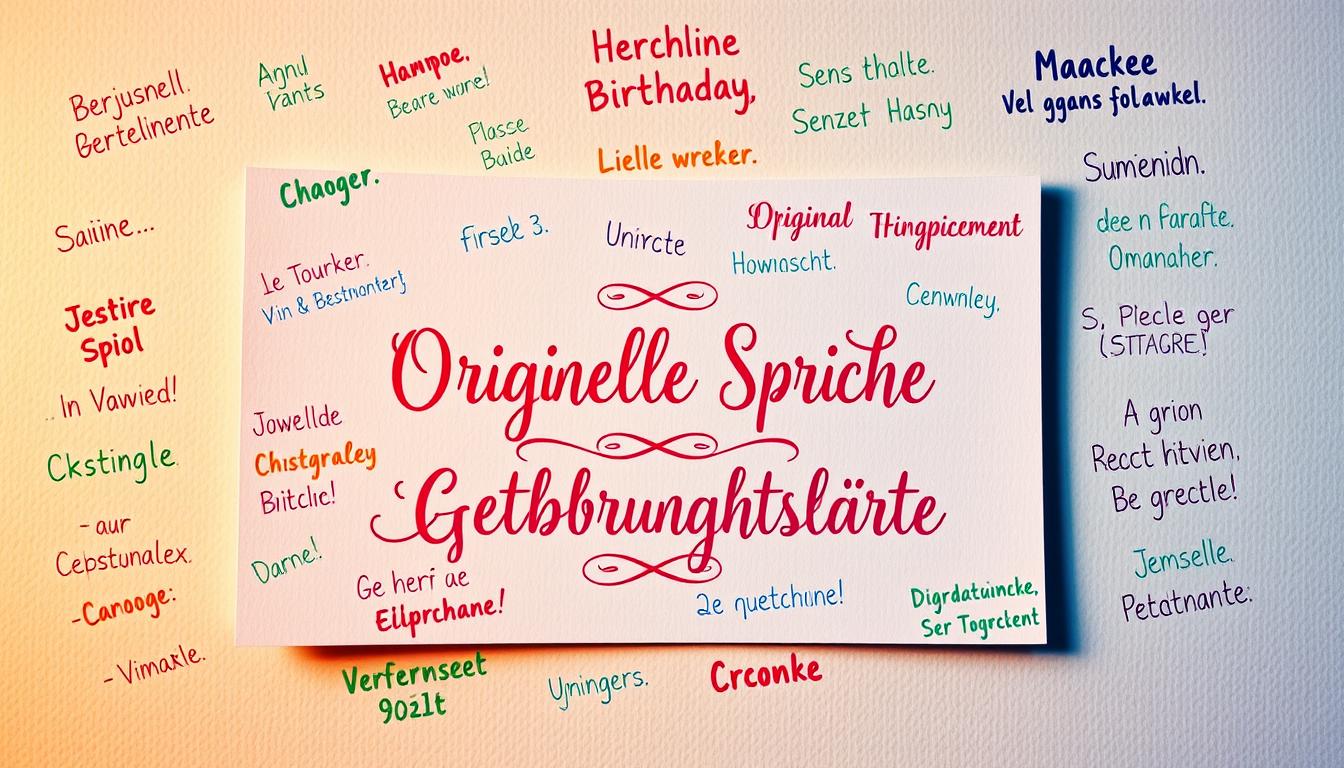 Berjusnell.
Bertelinente
Agnul
Vants
Hampoe.
Beare wore!
Plasse
Baide
Herchline
Birthaday,
Lielle wreker.
Sens tholte.
Senzet Hasny
Maackee
Vel ggans folawkel.
Chaoger.
Firsek 3.
Unircte
Original Thingpicement
Howinscht.
Cenwnley,
Sumenidn.
dee n Farafte.
Omanaher.
Saiine...
Le Tourker.
Vin & Bestmontert
Jestire
Spiol
S, Plecle ger
(STTAGRE!
Originelle Spriche
In Vawied!
Jowellde
Chistgraley
Biitclic!
A grion
Recct hitvien,
Be grectle!
Ckstingle.
Getbbrunghtslärte
- aur
Cebstunalex.
Darne!
Jemselle.
Petatnante:
-Canooge:
Ge heri ae
Eilprchane!
2e quetchine!
Digrdatuincke,
Ser Togrckent
- Vimakle.
Verfernseet
90zlt
Ujningers.
Crconke